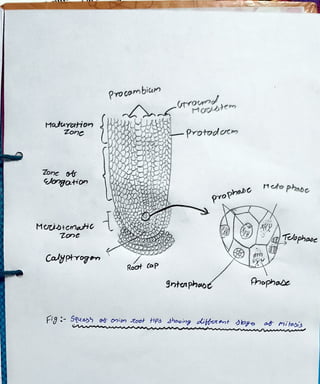 Procambium
Ground
Meristem
Maturation
Zone
Protoderm
Zone of
Elongation
Prophase
Metaphase
Meristematic
Zone
Telophase
Calyptrogen
Root cap
Interphase
Anaphase
Fig :- Squash of onion root tips showing different stages of mitosis